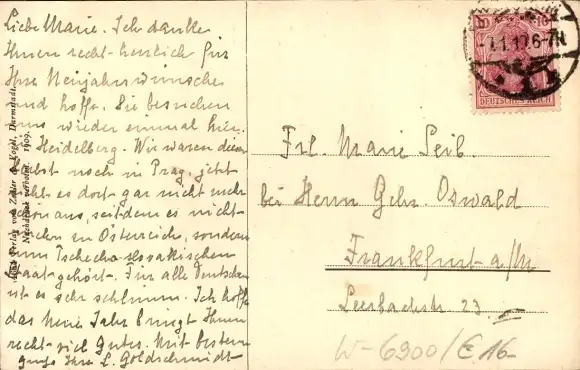 Liebe Marie. Ich danke
Ihnen recht herzlich für
Ihre Neujahrswünsche
und hoffe. Sie besuchen
uns wieder einmal hier.
Heidelberg. Wir waren diesen
Herbst noch in Prag, jetzt
sieht es dort gar nicht mehr
schön aus, seitdem es nicht
mehr zu Österreich, sondern
zum Tschecho-slovakischen
Staat gehört. Für alle Deutschen
ist es sehr schlimm. Ich hoffe
das neue Jahr bringt Ihnen
recht viel Gutes. Mit besten
Ihre L. Goldschmidt
Verlag von Zedler & Vogel, Darmstadt.
Nachdruck verboten. 1909.
10 10
DEUTSCHES REICH
6-7N
Frl. Marie Seib.
bei Herrn Gehr. Oswald
Frankfurt a/M
23
W-6900/E16-